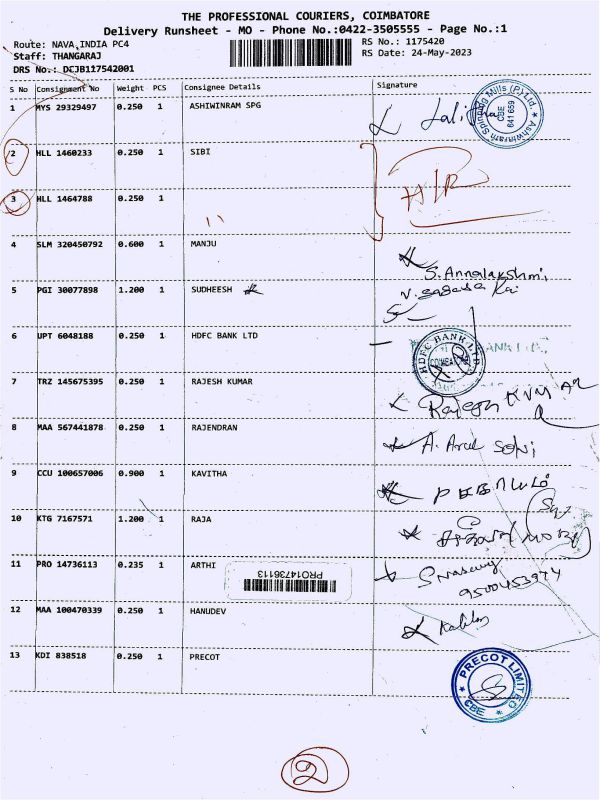 THE PROFESSIONAL COURIERS, COIMBATORE
Delivery Runsheet - MO - Phone No.:0422-3505555 - Page No.:1
Route: NAVA,INDIA PC4
RS No.: 1175420
Staff: THANGARAJ
RS Date: 24-May-2023
DRS No.: DCJB117542001
S No Consignment No Weight PCS Consignee Details Signature
1 MYS 29329497 0.250 1 ASHIWINRAM SPG
Ashwinram Spinning Mills (P) Ltd. CBE 641 659
2 HLL 1460233 0.250 1 SIBI
3 HLL 1464788 0.250 1
4 SLM 320450792 0.600 1 MANJU
S. Annalakshmi
5 PGI 30077898 1.200 1 SUDHEESH
6 UPT 6048188 0.250 1 HDFC BANK LTD
HDFC BANK LTD
7 TRZ 145675395 0.250 1 RAJESH KUMAR
Rajesh KUMAR
8 MAA 567441878 0.250 1 RAJENDRAN
9 CCU 100657006 0.900 1 KAVITHA
10 KTG 7167571 1.200 1 RAJA
11 PRO 14736113 0.235 1 ARTHI
PRO14736113
9500453974
12 MAA 100470339 0.250 1 HANUDEV
13 KDI 838518 0.250 1 PRECOT
PRECOT LIMITED CBE
2